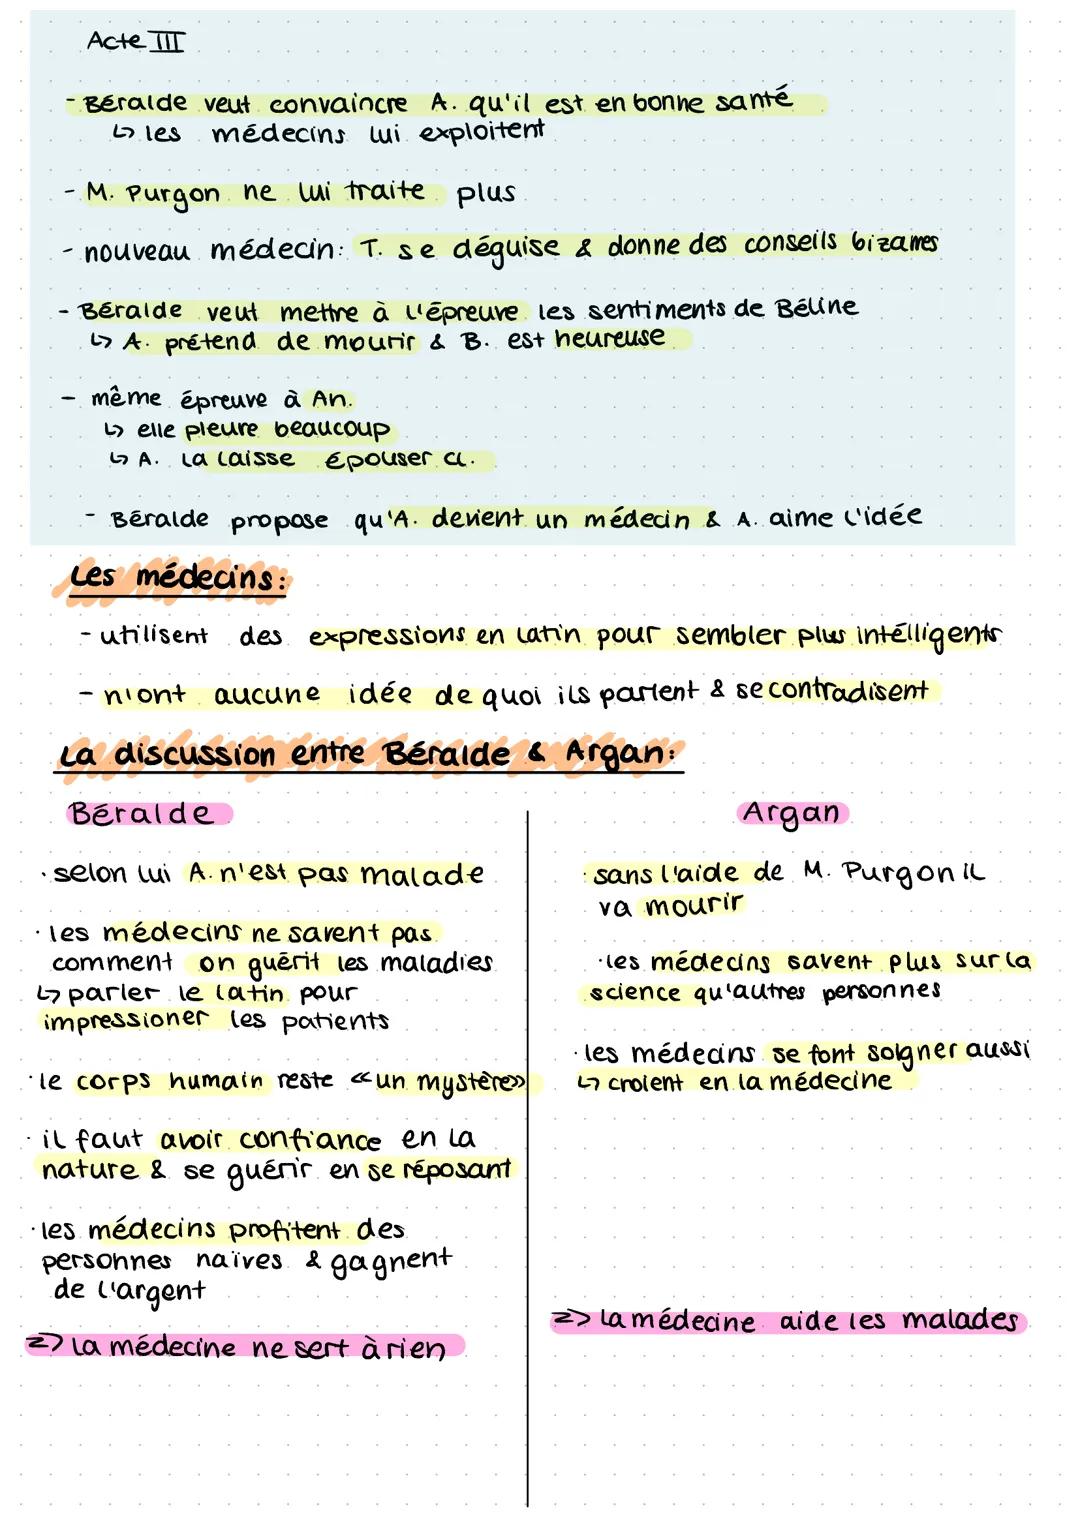 Acte III
- Béralde veut convaincre A. qu'il est en bonne santé
↳ les médecins lui exploitent
- M. Purgon ne lui traite plus
- nouveau médecin: T. se déguise & donne des conseils bizarres
- Béralde veut mettre à l'épreuve les sentiments de Béline
↳ A. prétend de mourir & B. est heureuse
- même épreuve à An.
↳ elle pleure beaucoup
↳ A. la laisse épouser Cl.
- Béralde propose qu'A. devient un médecin & A. aime l'idée
Les médecins:
- utilisent des expressions en latin pour sembler plus intélligents
- n'ont aucune idée de quoi ils parlent & se contradisent
La discussion entre Béralde & Argan:
Béralde
· selon lui A. n'est pas malade
· les médecins ne savent pas
comment on guérit les maladies
↳ parler le latin pour
impressioner les patients
· le corps humain reste «un mystère»
· il faut avoir confiance en la
nature & se guérir en se réposant
· les médecins profitent des
personnes naïves & gagnent
de l'argent
=> La médecine ne sert à rien
Argan
· sans l'aide de M. Purgon il
va mourir
· les médecins savent plus sur la
science qu'autres personnes
· les médecins se font soigner aussi
↳ croient en la médecine
=> La médecine aide les malades